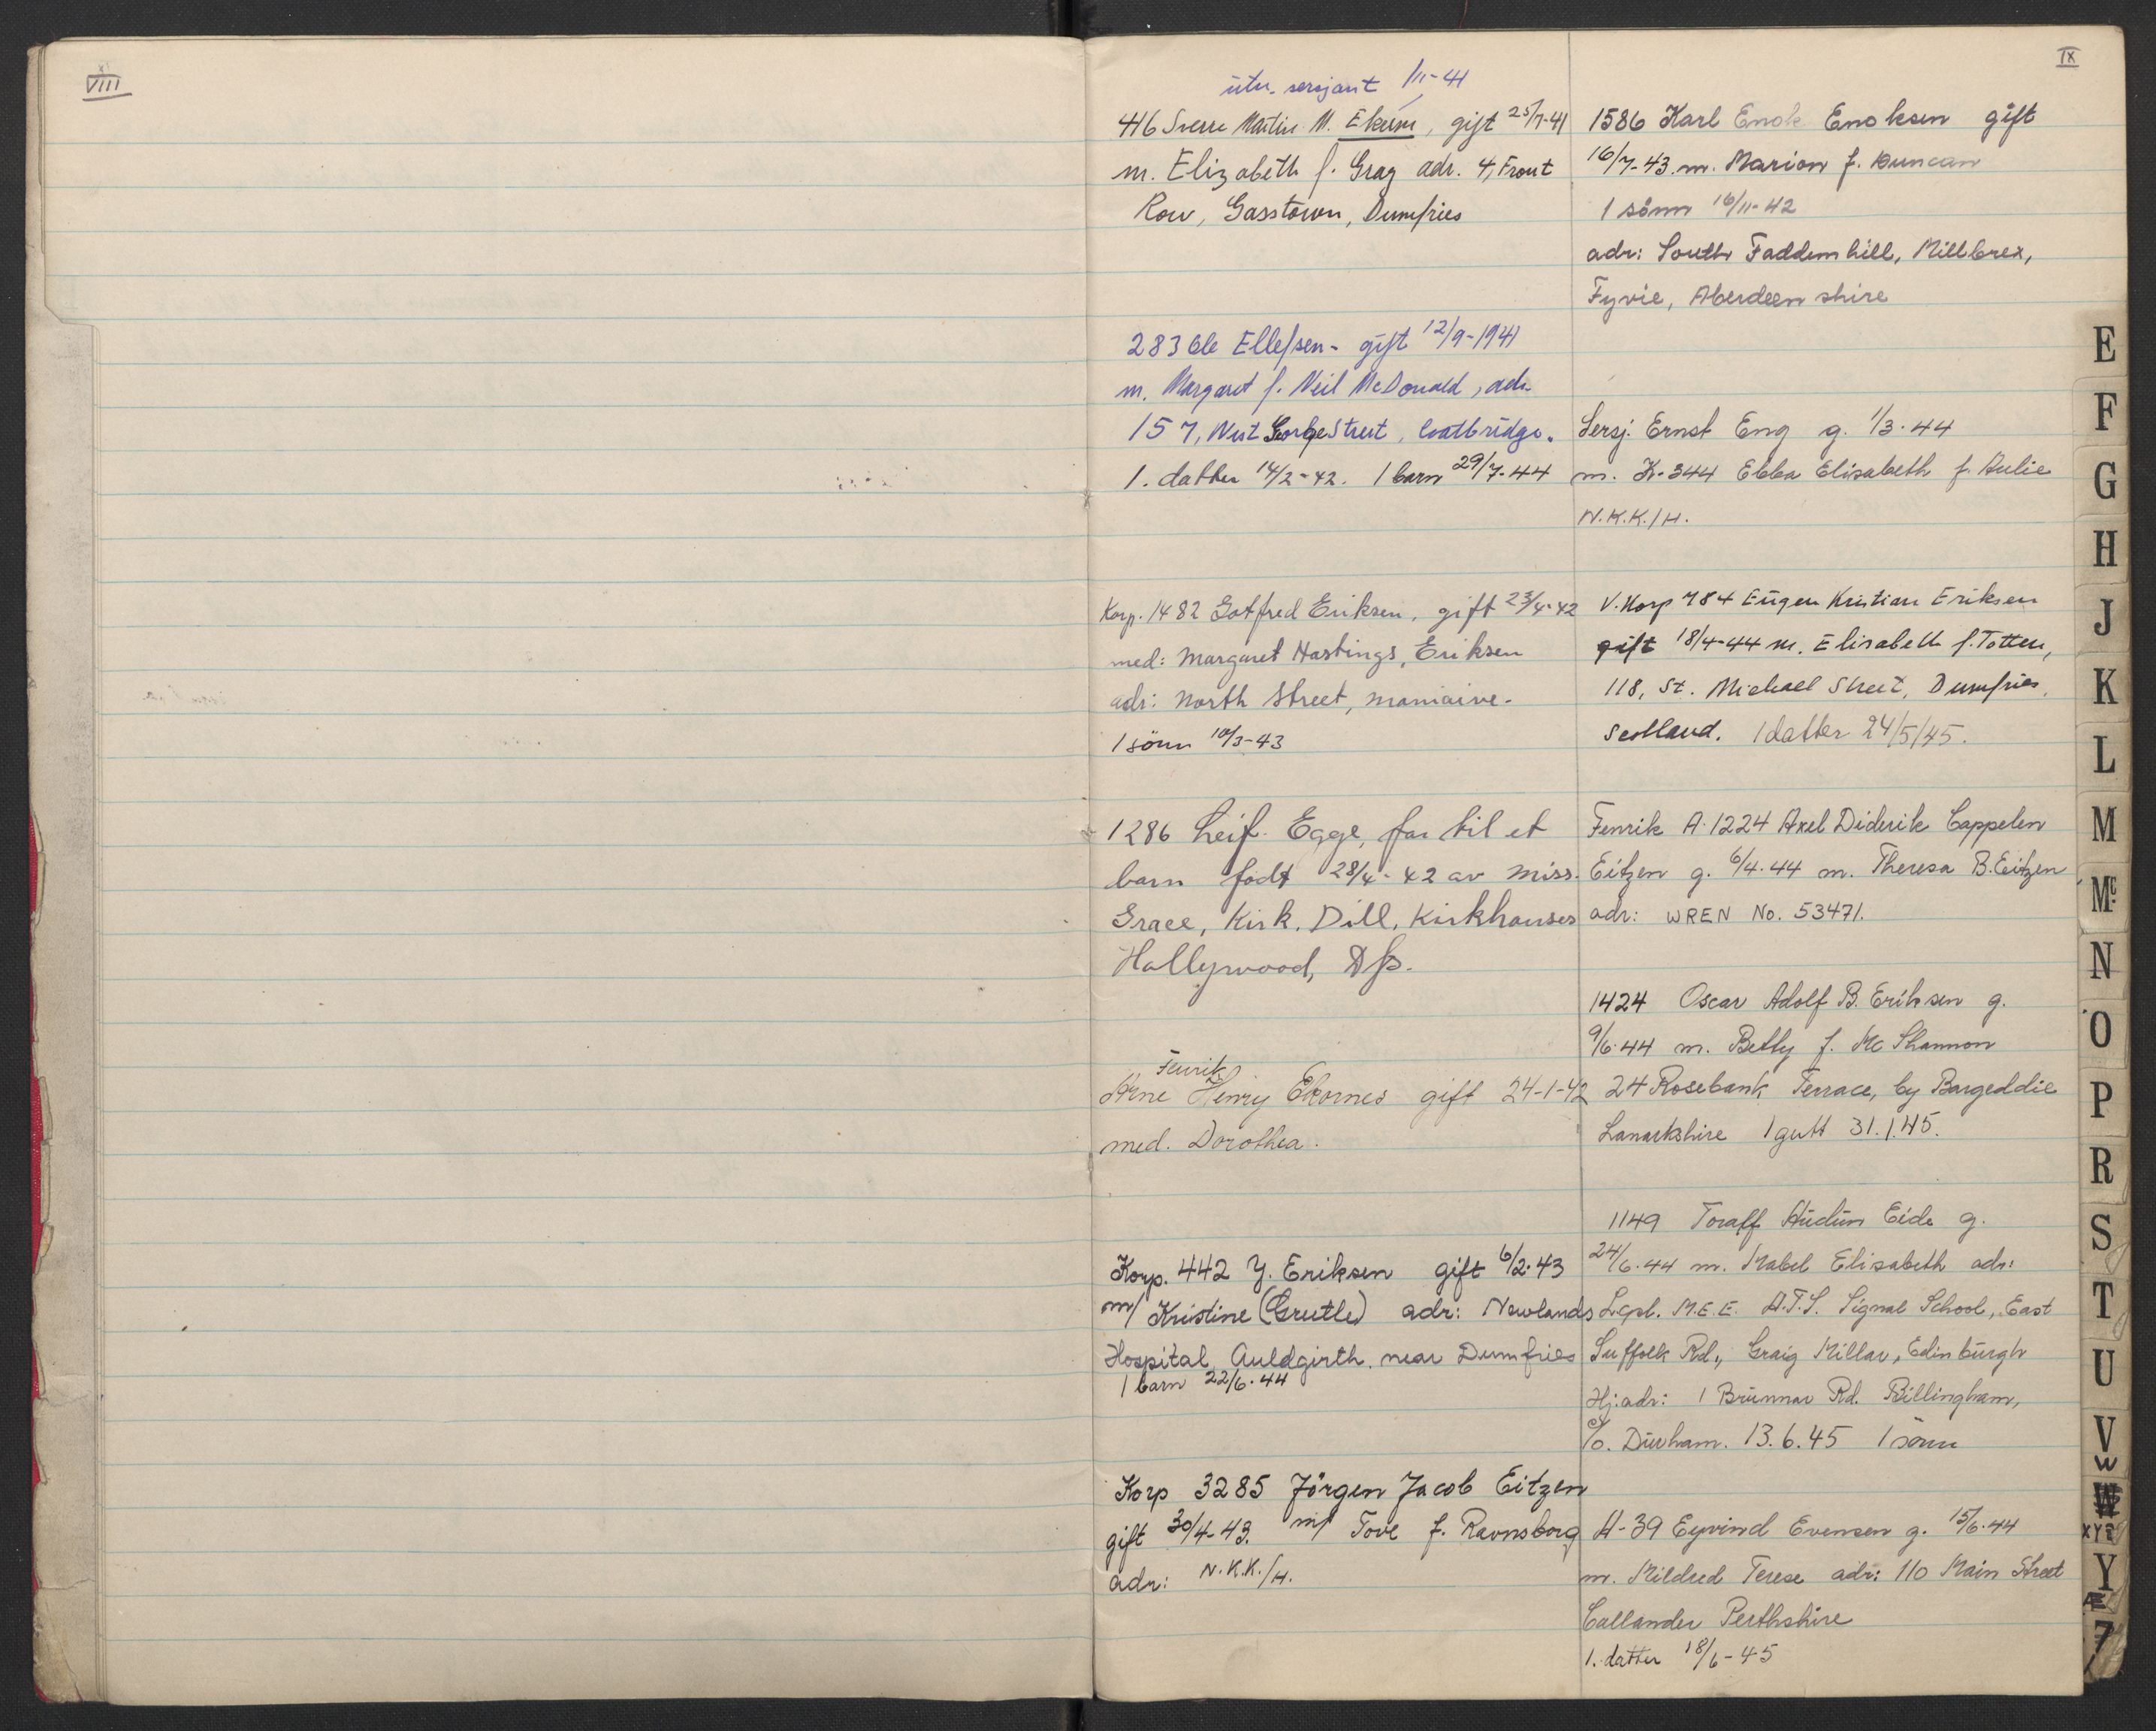 VIII
IX
utn. sersjant 1/11-41
416 Sverre Martin M. Ekum, gift 25/7-41
m. Elizabeth f. Gray adr. 4, Front
Row, Gasstown, Dumfries
283 Ole Ellefsen - gift 12/9-1941
m. Margaret f. Neil McDonald, adr.
157, West George Street, Coatbridge.
1. datter 14/2-42. 1 barn 29/7-44
Korp. 1482 Gotfred Eriksen, gift 23/4-42
med: Margaret Hastings, Eriksen
adr: North Street, Moniaive.
1 sönn 10/3-43
1286 Leif Egge, far til et
barn födt 28/4-42 av Miss.
Grace, Kirk. Dill, Kirkhouses
Hollywood, Dfs.
Fenrik
Arne Henry Ekornes gift 24-1-42
med. Dorothea.
Korp. 442 Y. Eriksen gift 6/2-43
m/ Kristine (Grutle) adr: Newlands
Hospital, Auldgirth, near Dumfries
1 barn 22/6-44
Korp 3285 Jörgen Jacob Eitzen
gift 30/4-43. m/ Tove f. Ravnsborg
adr: N.K.K./H.
1586 Karl Enok Enoksen gift
16/7-43. m. Marion f. Duncan
1 sönn 16/11-42
adr: South Faddemhill, Millbrex,
Fyvie, Aberdeenshire
Sersj. Ernst Eng g. 1/3-44
m. K-344 Ebba Elisabeth f. Aulie
N.K.K./H.
V. Korp 784 Eugen Kristian Eriksen
gift 18/4-44 m. Elisabeth f. Totten,
118, St. Michael Street, Dumfries,
Scotland. 1 datter 24/5/45.
Fenrik A. 1224 Axel Diderik Cappelen
Eitzen g. 6/4.44 m. Theresa B. Eitzen
adr: WREN No. 53471.
1424 Oscar Adolf B. Eriksen g.
9/6.44 m. Betty f. Mc Shannon
24 Rosebank Terrace, by Bargeddie
Lanarkshire 1 gutt 31.1.45.
1149 Toralf Audun Eide g.
24/6.44 m. Mabel Elisabeth adr:
Lcpl. M.E.E. A.T.S. Signal School, East
Suffolk Rd., Graig Millar, Edinburgh
Hj.adr: 1 Brunnar Rd. Billingham,
c/o. Durham. 13.6.45 1 sönn
A-39 Eyvind Evensen g. 15/6.44
m. Mildred Terese adr: 110 Main Street
Callander Perthshire
1. datter 18/6-45
E
F
G
H
J
K
L
M
Mc
N
O
P
R
S
T
U
V
W
W
XYZ
Y
Æ